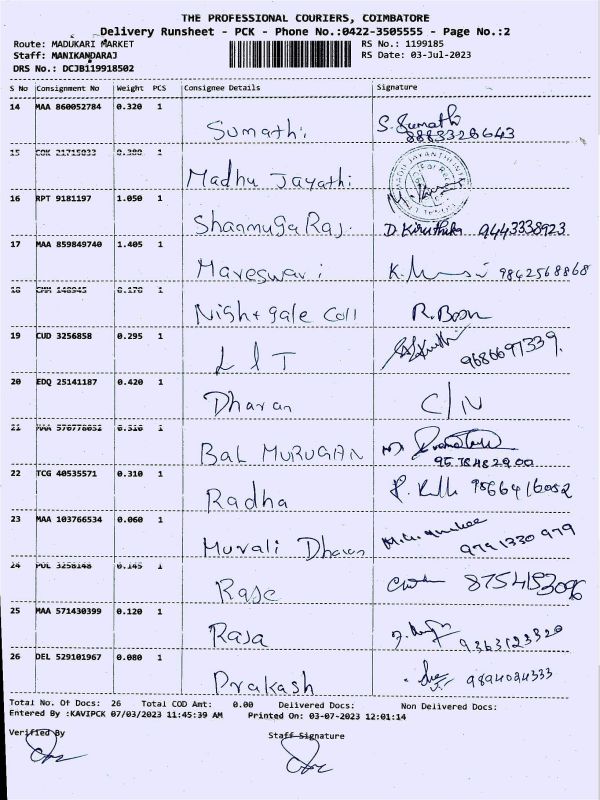 THE PROFESSIONAL COURIERS, COIMBATORE
Delivery Runsheet - PCK - Phone No.:0422-3505555 - Page No.:2
Route: MADUKARI MARKET RS No.: 1199185
Staff: MANIKANDARAJ RS Date: 03-Jul-2023
DRS No.: DCJB119918502
S No Consignment No Weight PCS Consignee Details Signature
14 MAA 860052784 0.320 1 Sumathi S. Sumathi
8883328643
15 COK 21715033 0.300 1 Madhu Jayathi
16 RPT 9181197 1.050 1 Shanmuga Raj. D. Kiruthika 9443338923
17 MAA 859849740 1.405 1 Mareswari 9842568868
18 148945 0.170 1 Nightgale Coll R. Boon
19 CUD 3256858 0.295 1 L I T 9686697339.
20 EDQ 25141187 0.420 1 Dharan C/N
21 MAA 570778052 0.510 1 Bal MURUGAN
9578482900
22 TCG 40535571 0.310 1 Radha
23 MAA 103766534 0.060 1 Murali Dharan 9791330979
24 POL 3258148 0.145 1 8754153096
25 MAA 571430399 0.120 1 Raja 9363123320
26 DEL 529101967 0.080 1 Prakash 9894024333
Total No. Of Docs: 26 Total COD Amt: 0.00 Delivered Docs: Non Delivered Docs:
Entered By :KAVIPCK 07/03/2023 11:45:39 AM Printed On: 03-07-2023 12:01:14
Verified By Staff Signature